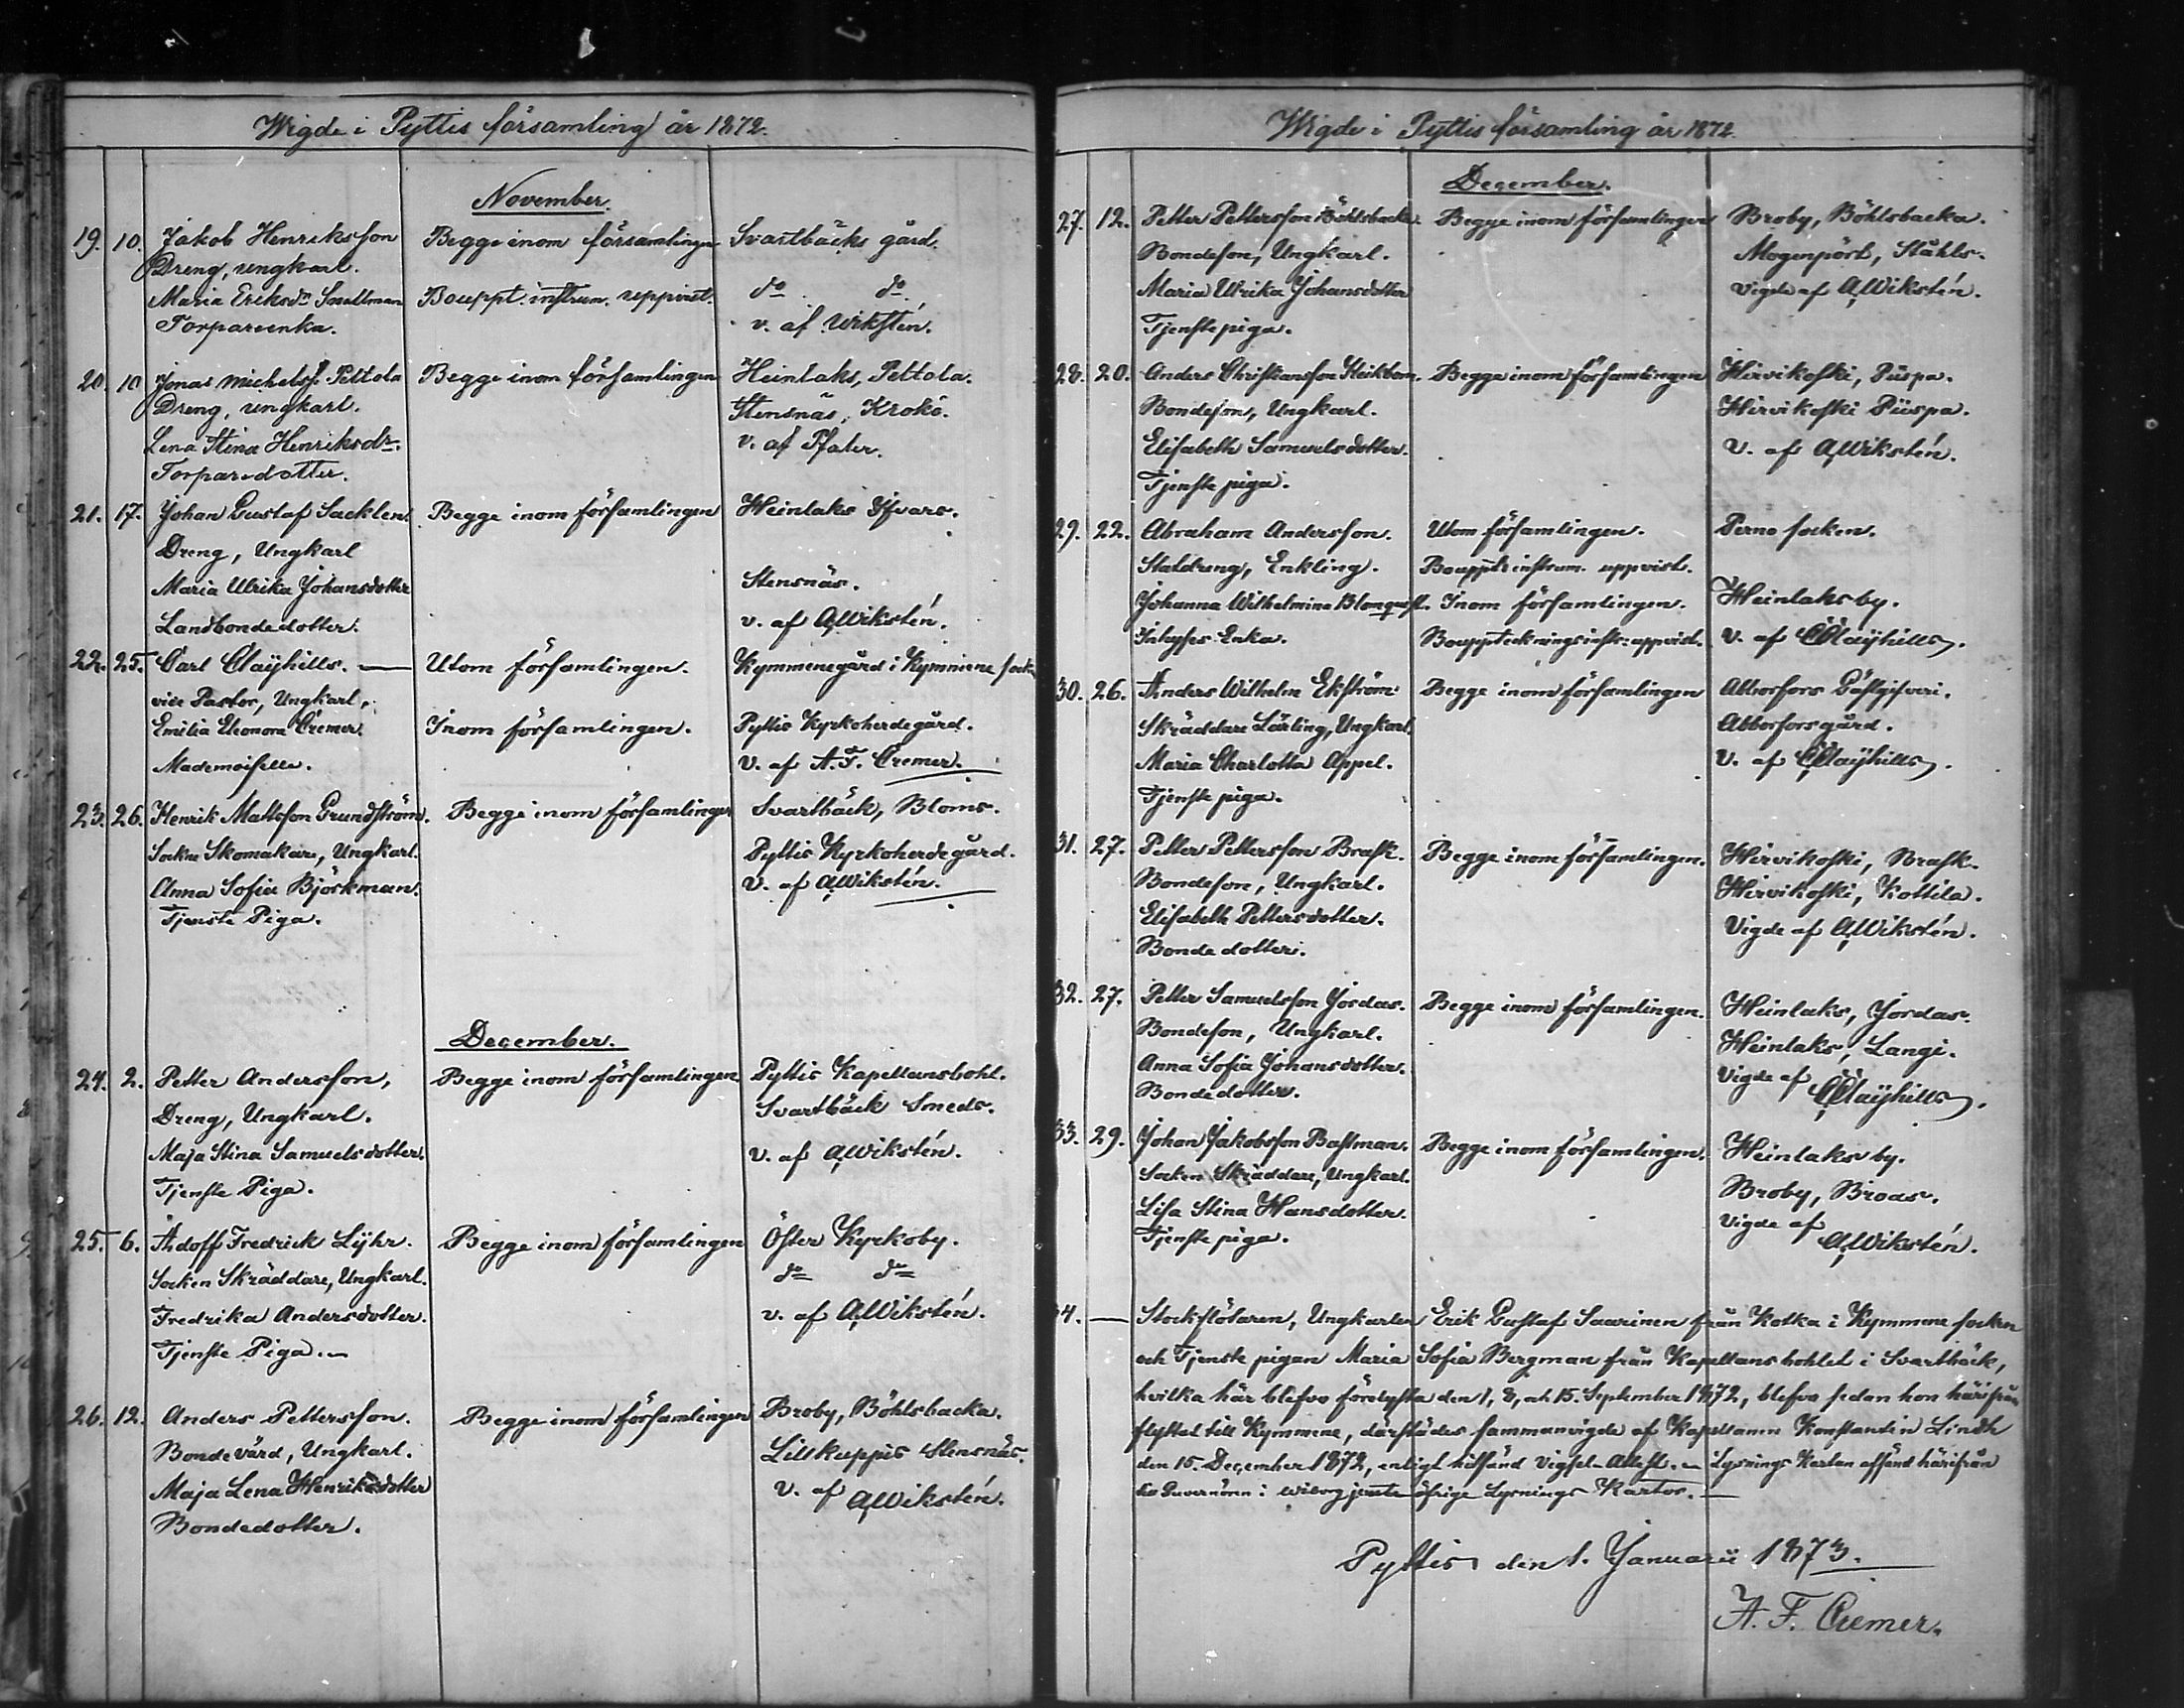 Wigde i Pyttis församling år 1872.
November.
19. 10. Jakob Henriksson Begge inom församlingen Svartbäcks gård.
Dreng, ungkarl.
Maria Eriksdr Smaltman Bouppt. instrum. uppvist. do do
Torpareenka. v. af Wikstén.
20. 10 Jonas Michelss. Peltola Begge inom församlingen Heinlaks, Peltola.
Dreng, ungkarl. Stensnäs, Krokö.
Lena Stina Henriksdr. v. af Pfaler.
Torparedotter.
21. 17. Johan Gustaf Sacklen. Begge inom församlingen Heinlaks Yfvars.
Dreng, Ungkarl
Maria Ulrika Johansdotter Stensnäs.
Landbondedotter. v. af AWikstén.
22. 25. Carl Claÿhills. Utom församlingen. Kymmenegård i Kymmene sock.
vice Pastor, Ungkarl,
Emilia Eleonora Cremer. Inom församlingen. Pyttis Kyrkoherdegård.
Mademoiselle. v. af A. F. Cremer.
23. 26. Henrik Mattsson Grundström. Begge inom församlingen Svartbäck, Bloms.
Sockne Skomakare, Ungkarl. Pyttis Kyrkoherdegård.
Anna Sofia Björkman. v. af AWikstén.
Tjenste Piga.
December.
24. 2. Petter Andersson, Begge inom församlingen. Pyttis Kapellansbohl.
Dreng, Ungkarl. Svartbäck Smeds.
Maja Stina Samuelsdotter. v. af AWikstén.
Tjenste Piga.
25. 6. Adoff Fredrick Lÿhr. Begge inom församlingen Öster Kyrkoby.
Socken Skräddare, Ungkarl. do do
Fredrika Andersdotter. v. af AWikstén.
Tjenste Piga.
26. 12. Anders Pettersson. Begge inom församlingen Broby, Böhlsbacka.
Bondevärd, Ungkarl. Lillkuppis Stensnäs.
Maja Lena Henriksdotter v. af AWikstén.
Bondedotter.
Wigde i Pyttis församling år 1872.
December.
27. 12. Petter Pettersson Böhlsbacka. Begge inom församlingen Broby, Böhlsbacka.
Bondeson, Ungkarl. Mogenpört, Ståhls.
Maria Ulrika Johansdotter vigde af AWikstén.
Tjenstepiga.
28. 20. Anders Christiansson Begge inom församlingen Hirvikoski, Piispa.
Bondeson, Ungkarl. Hirvikoski Piispa.
Elisabeth Samuelsdotter. v. af AWikstén.
Tjenste piga.
29. 22. Abraham Andersson. Utom församlingen. Perno socken.
Statdreng, Enkling. Bouppt. instrum. uppvist.
Johanna Wilhelmina Blomqvist. Inom församlingen. Heinlaks by.
Inhyses Enka. Bouppteckningsinstr. uppvist. v. af CClaÿhills.
30. 26. Anders Wilhelm Ekström Begge inom församlingen Abborfors Gästgifveri.
Skräddare Lärling, Ungkarl. Abborfors gård.
Maria Charlotta Appel. v. af CClaÿhills.
Tjenste piga.
31. 27. Petter Pettersson Brask. Begge inom församlingen. Hirvikoski, Brask.
Bondeson, Ungkarl. Hirvikoski, Kottila.
Elisabeth Pettersdotter. Vigde af AWikstén.
Bonde dotter.
32. 27. Petter Samuelsson Jordas. Begge inom församlingen. Heinlaks, Jordas.
Bondeson, Ungkarl. Heinlaks, Langi.
Anna Sofia Johansdotter. Vigde af CClaÿhills.
Bondedotter.
33. 29. Johan Jakobsson Bastman. Begge inom församlingen. Heinlaks by.
Socken Skräddare, Ungkarl. Broby, Broas.
Lisa Stina Hansdotter. Vigde af AWikstén.
Tjenste piga.
34. Stockflötaren, Ungkarlen Erik Gustaf Saarinen från Kotka i Kymmene socken
och Tjenste pigan Maria Sofia Bergman från Kapellansbohlet i Svartbäck,
hvilka här blefvo förelysta den 1, 8, och 15. September 1872, blefvo sedan hon härifrån
flyttat till Kymmene, därstädes sammanvigde af Kapellanen Konstantin Lindh
den 15. December 1872, enligt hitsänd Vigsel-Attest. Lysnings Kartan afsänd härifrån
till Guvernören i Wiborg jemte öfrige Lysnings Kartor.
Pyttis den 1. Januarii 1873.
A. F. Cremer.